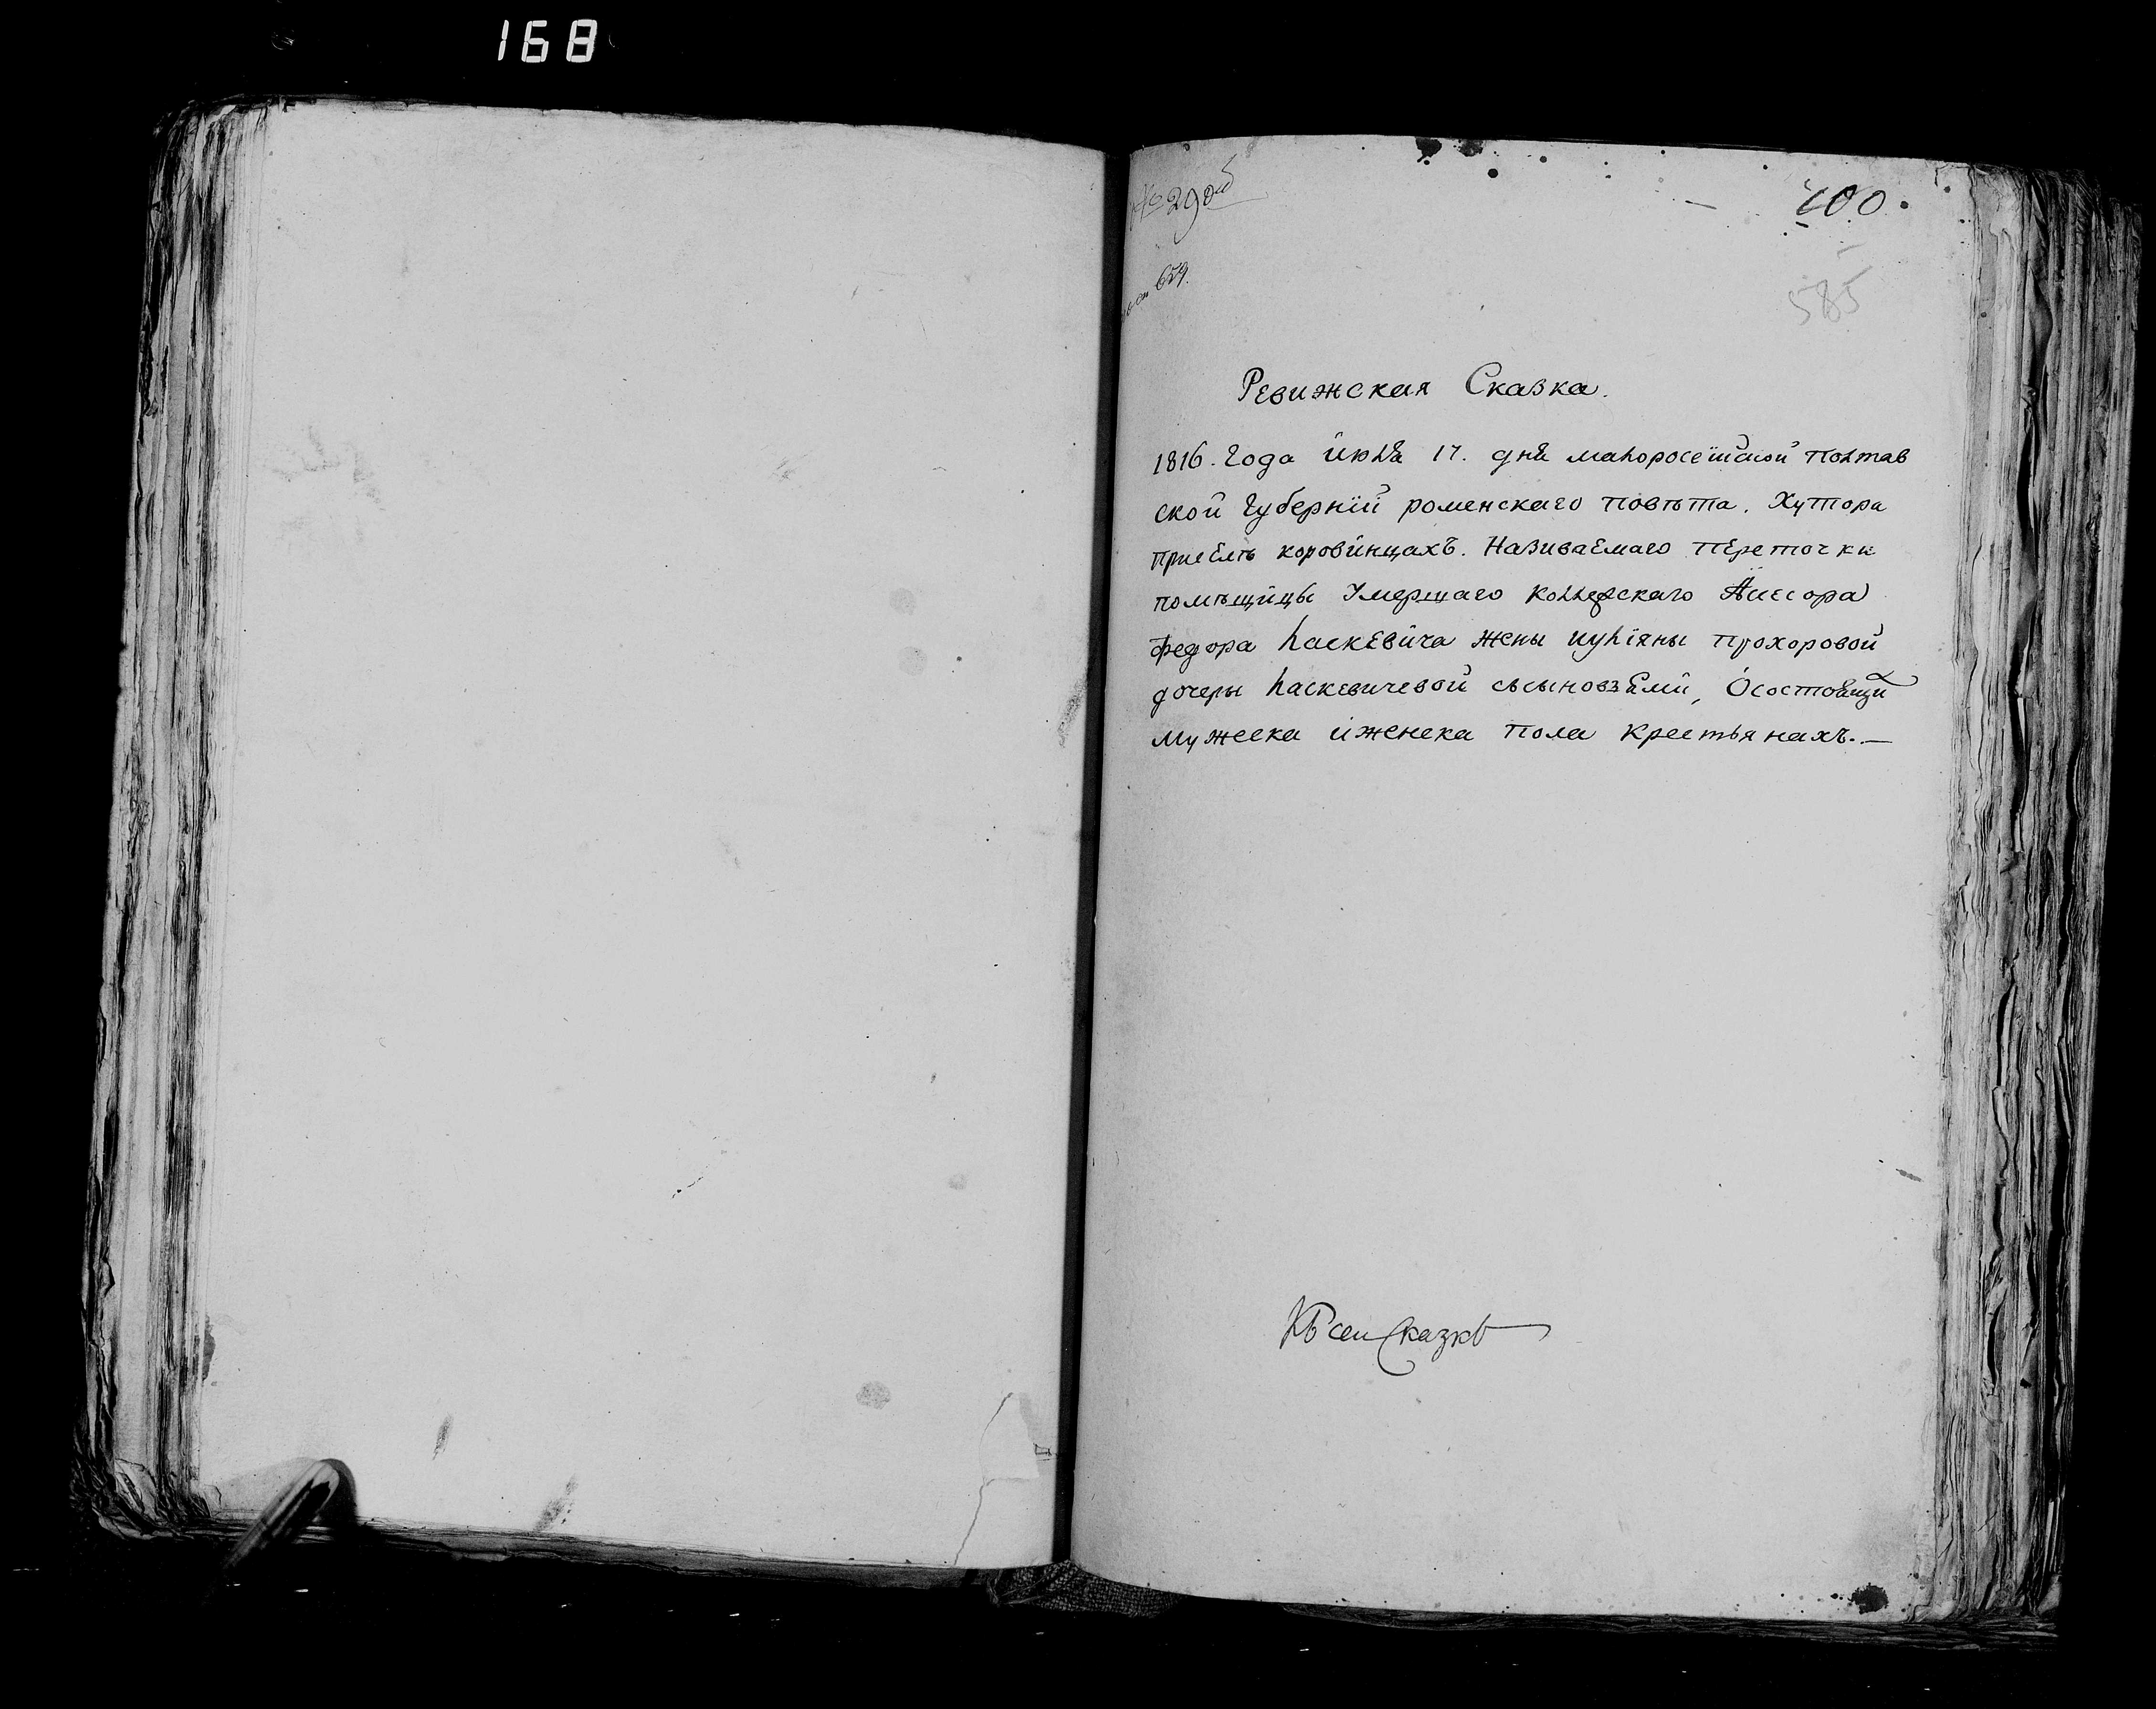 168
№ 290й
400.
659.
585
Ревижская Сказка.
1816. Года июня 17. дня малоросейской полтав
ской губернїй роменскаго повѣта. Хутора
присѣлѣ коровинцахъ. Називаемаго переточки
помѣщицы Умершаго коллежскаго Асисора
федора паскевича жены иулїяны прохоровой
дочеры паскевичевой съсыновями, Осостоящи
мужеска иженска пола крестьянахъ.—
Къ сей Сказкѣ